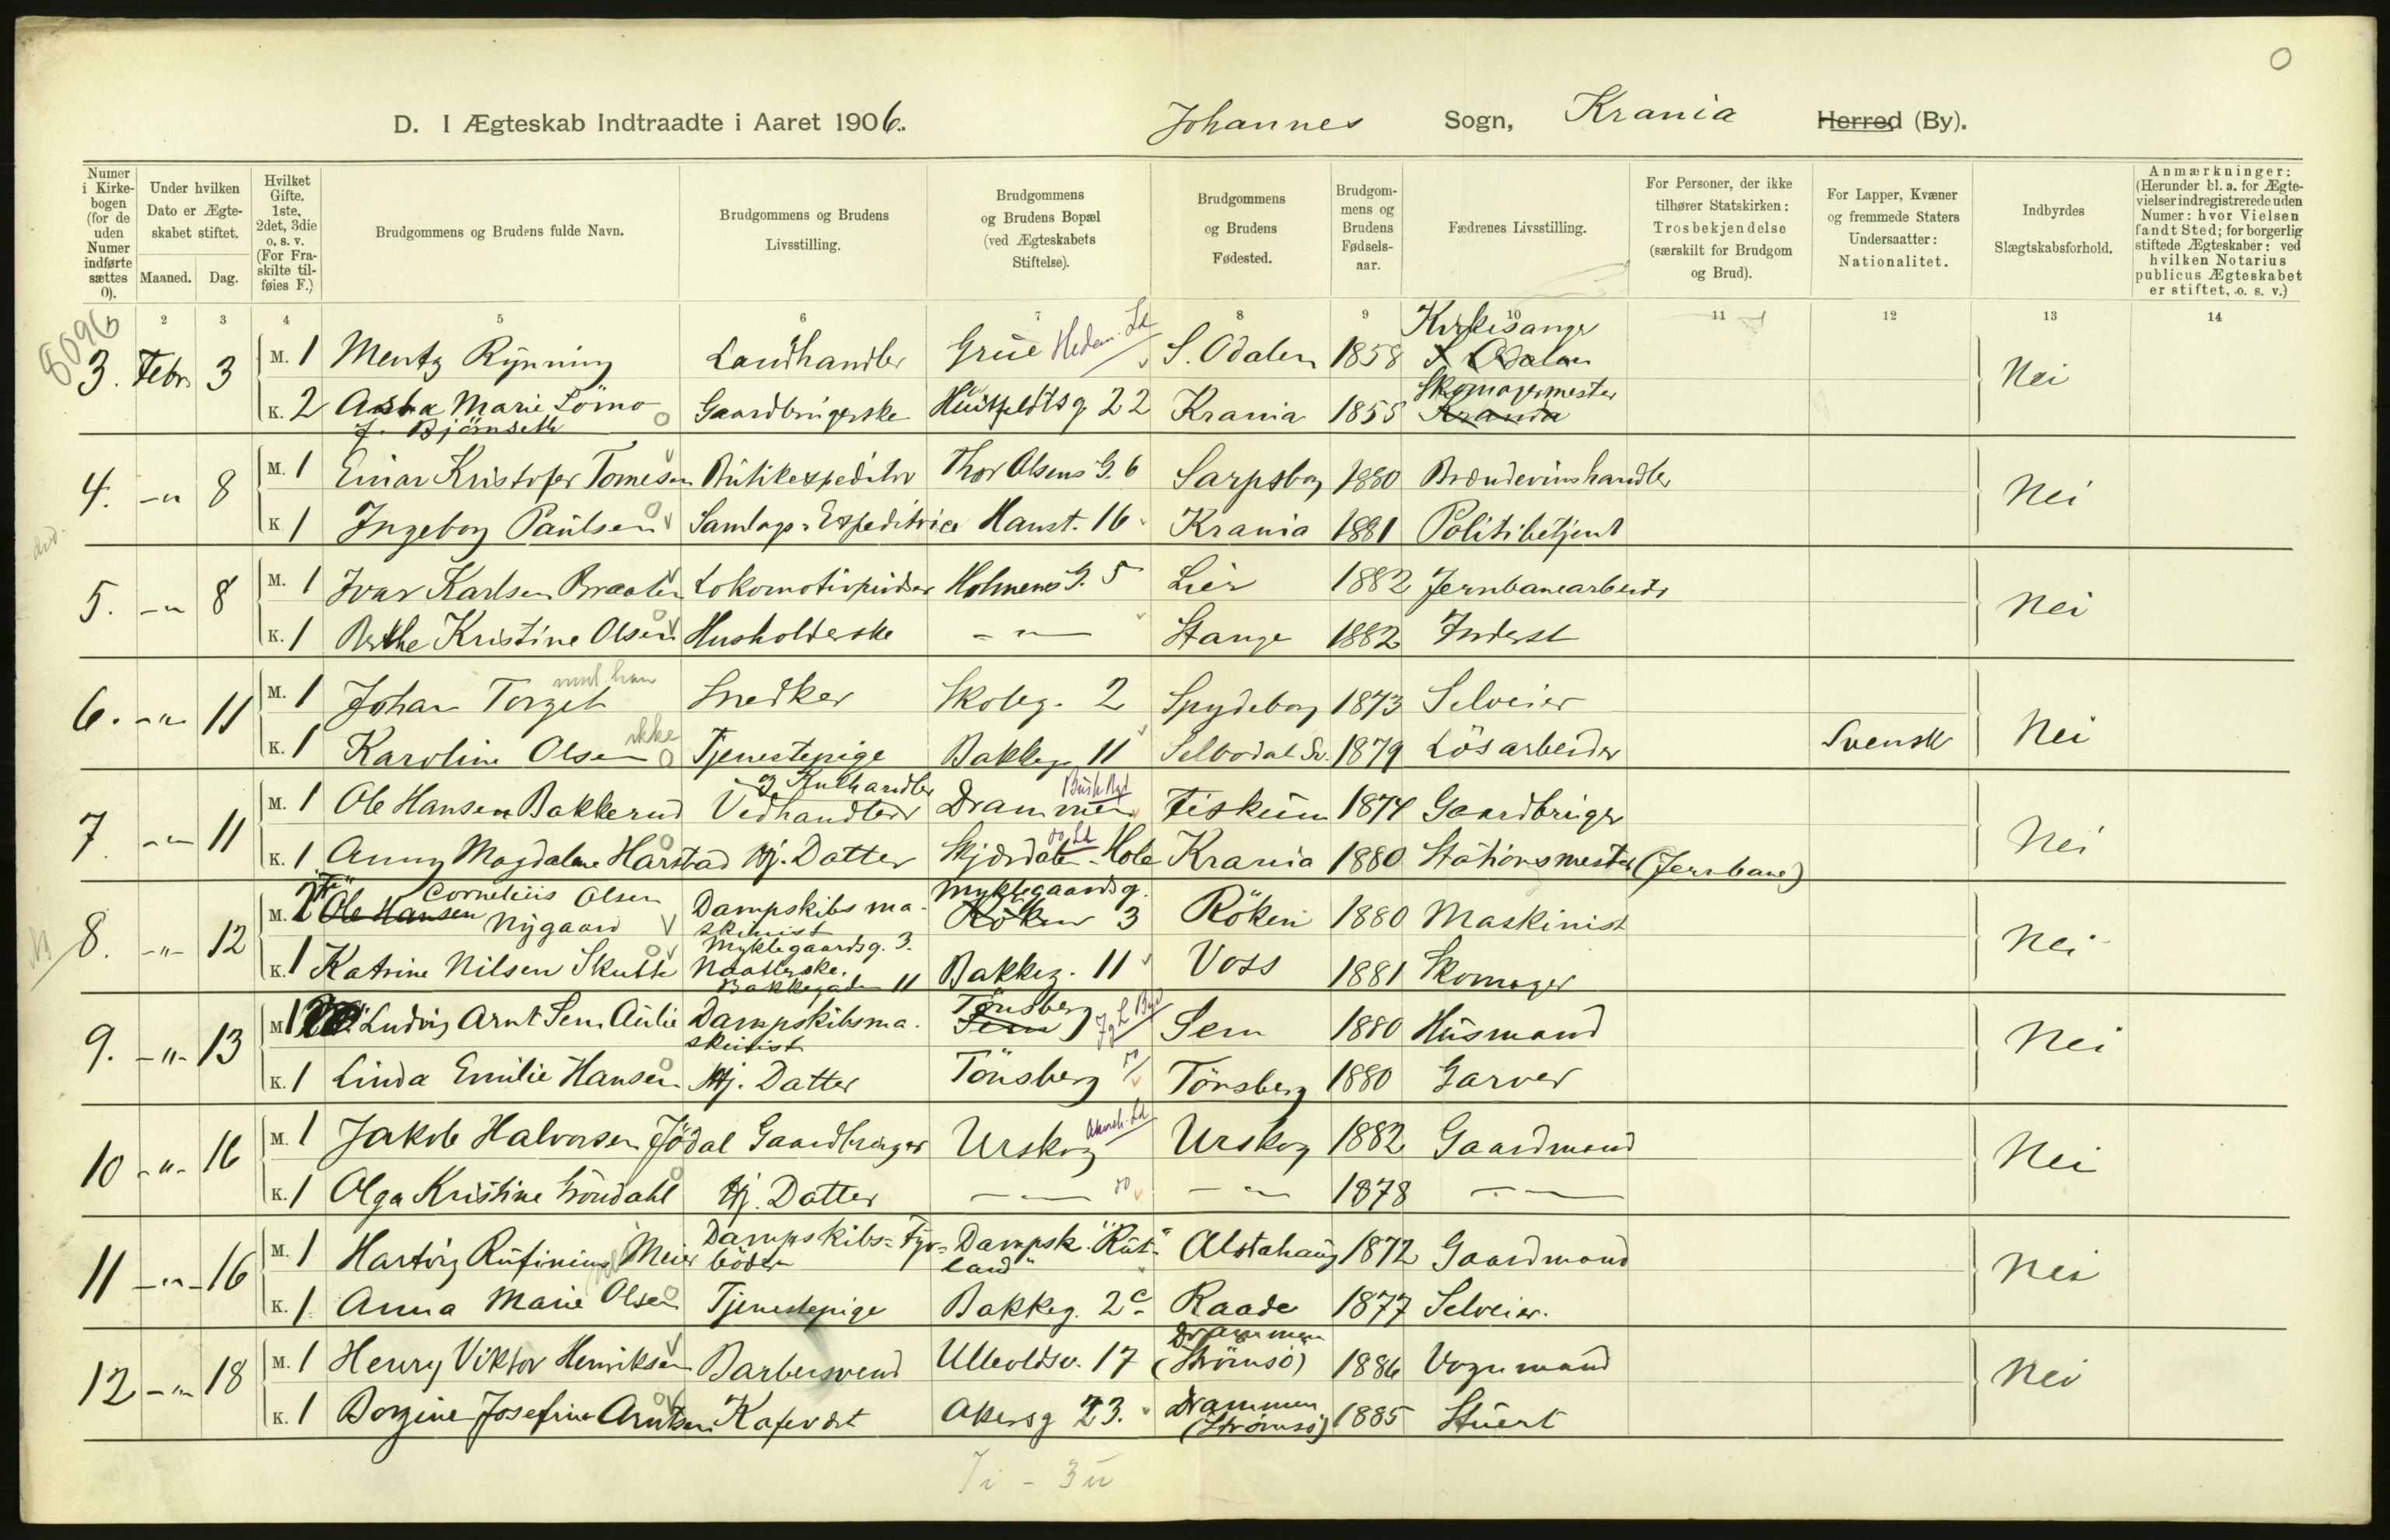 0
D. I Ægteskab Indtraadte i Aaret 1906. Johannes Sogn, Krania Herred (By).
Numer i Kirkebogen (for de uden Numer indførte sættes 0).
Under hvilken Dato er Ægteskabet stiftet. Maaned. Dag.
Hvilket Gifte. 1ste, 2det, 3die o. s. v. (For Fraskilte tilføies F.)
Brudgommens og Brudens fulde Navn.
Brudgommens og Brudens Livsstilling.
Brudgommens og Brudens Bopæl (ved Ægteskabets Stiftelse).
Brudgommens og Brudens Fødested.
Brudgommens og Brudens Fødselsaar.
Fædrenes Livsstilling.
For Personer, der ikke tilhører Statskirken: Trosbekjendelse (særskilt for Brudgom og Brud).
For Lapper, Kvæner og fremmede Staters Undersaatter: Nationalitet.
Indbyrdes Slægtskabsforhold.
Anmærkninger: (Herunder bl. a. for Ægtevielser indregistrerede uden Numer: hvor Vielsen fandt Sted; for borgerlig stiftede Ægteskaber: ved hvilken Notarius publicus Ægteskabet er stiftet, o. s. v.)
2 3 4 5 6 7 8 9 10 11 12 13 14
3. Febr. 3 M. 1 Mentz Rynning Landhandler Grue Hedem. Ld S. Odalen 1858 Kirkesanger S. Odalen Nei
K. 2 Anna Marie Lömo f. Björnseth Gaardbrugerske Huitfeldtsg 22 Krania 1855 Skomagermester Krania
4. -"- 8 M. 1 Einar Kristofer Tomesen Butikexpeditør Thor Olsens G. 6 Sarpsborg 1880 Brændevinshandler Nei
K. 1 Ingeborg Paulsen Samlags-Expeditrice Hanst. 16 Krania 1881 Politibetjent
5. -"- 8 M. 1 Ivar Karlsen Braaten Lokomotivpudser Holmens G. 5 Lier 1882 Jernbanearbeider Nei
K. 1 Berthe Kristine Olsen Husholderske -"- Stange 1882 Inderst
6. -"- 11 M. 1 Johan Torget Snedker Skoleg. 2 Spydeberg 1873 Selveier Nei
K. 1 Karoline Olsen ikke Tjenestepige Bakkeg. 11 Selbodal Sv. 1879 Lösarbeider Svensk
7. -"- 11 M. 1 Ole Hansen Bakkerud Vedhandler & Kulhandler Drammen Busk Byd Fiskum 1874 Gaardbruger Nei
K. 1 Anny Magdalene Harstad Hj. Datter Skjærdalen Hole Krania 1880 Stationsmester (Jernbane)
8. -"- 12 M. 1 Ole Hansen Cornelius Olsen Nygaard Dampskibsmaskinist Myklegaardsg. 3 Röken Röken 1880 Maskinist Nei
Myklegaardsg. 3.
K. 1 Katrine Nilsen Skutle Naatlerske. Bakkegaden 11 Bakkeg. 11 Voss 1881 Skomager
9. -"- 13 M. 1 Ludvig Arnt Sem Aulie Dampskibsmaskinist Tönsberg Sem Sem 1880 Husmand Nei
K. 1 Linda Emilie Hansen Hj. Datter Tönsberg Tönsberg 1880 Garver
10 -"- 16 M. 1 Jakob Halvorsen Jödal Gaardbruger Urskog Akersh. Ld Urskog 1882 Gaardmand Nei
K. 1 Olga Kristine Gröndahl Hj. Datter -"- -"- 1878 -"-
11 -"- 16 M. 1 Hartvig Rufinius Meier Dampskibs-Fyrböder Dampsk. "Rutland" Alstahaug 1872 Gaardmand Nei
K. 1 Anna Marie Olsen Tjenestepige Bakkeg. 2c Raade 1877 Selveier.
12 -"- 18 M. 1 Henry Viktor Henriksen Barbersvend Ullevoldsv. 17 Drammen (Strömsö) 1886 Vognmand Nei
K. 1 Borgine Josefine Arntsen Kafevært Akersg 23. Drammen (Strömsö) 1885 Stuert
7i - 3u